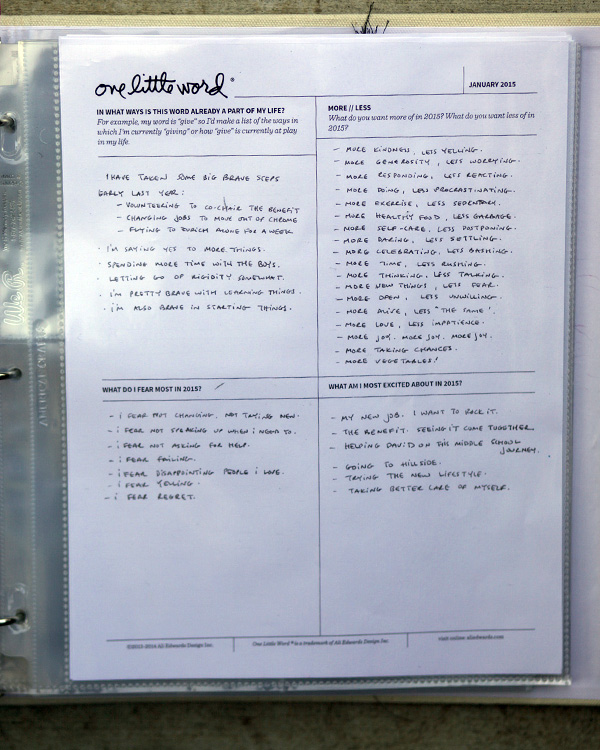 one little word®
JANUARY 2015
IN WHAT WAYS IS THIS WORD ALREADY A PART OF MY LIFE?
For example, my word is "give" so I'd make a list of the ways in
which I'm currently "giving" or how "give" is currently at play
in my life.
I HAVE TAKEN SOME BIG BRAVE STEPS
EARLY LAST YEAR:
- VOLUNTEERING TO CO-CHAIR THE BENEFIT
- CHANGING JOBS TO MOVE OUT OF CHROME
- FLYING TO ZURICH ALONE FOR A WEEK
· I'M SAYING YES TO MORE THINGS.
· SPENDING MORE TIME WITH THE BOYS.
· LETTING GO OF RIGIDITY SOMEWHAT.
· I'M PRETTY BRAVE WITH LEARNING THINGS.
· I'M ALSO BRAVE IN STARTING THINGS.
MORE // LESS
What do you want more of in 2015? What do you want less of in
2015?
- MORE KINDNESS, LESS YELLING.
- MORE GENEROSITY, LESS WORRYING.
- MORE RESPONDING, LESS REACTING.
- MORE DOING, LESS PROCRASTINATING.
- MORE EXERCISE, LESS SEDENTARY.
- MORE HEALTHY FOOD, LESS GARBAGE.
- MORE SELF-CARE, LESS POSTPONING.
- MORE DARING, LESS SETTLING.
- MORE CELEBRATING, LESS BASHING.
- MORE TIME, LESS RUSHING.
- MORE THINKING, LESS TALKING.
- MORE NEW THINGS, LESS FEAR.
- MORE OPEN, LESS UNWILLING.
- MORE ALIVE, LESS "THE SAME".
- MORE LOVE, LESS IMPATIENCE.
- MORE JOY. MORE JOY. MORE JOY.
- MORE TAKING CHANCES.
- MORE VEGETABLES!
WHAT DO I FEAR MOST IN 2015?
- I FEAR NOT CHANGING. NOT TRYING NEW.
- I FEAR NOT SPEAKING UP WHEN I NEED TO.
- I FEAR NOT ASKING FOR HELP.
- I FEAR FAILING.
- I FEAR DISAPPOINTING PEOPLE I LOVE.
- I FEAR YELLING.
- I FEAR REGRET.
WHAT AM I MOST EXCITED ABOUT IN 2015?
- MY NEW JOB. I WANT TO ROCK IT.
- THE BENEFIT. SEEING IT COME TOGETHER.
- HELPING DAVID ON THIS MIDDLE SCHOOL
JOURNEY.
- GOING TO HILLSIDE.
- TRYING THE NEW LIFESTYLE.
- TAKING BETTER CARE OF MYSELF.
©2013-2014 Ali Edwards Design Inc.
One Little Word ® is a trademark of Ali Edwards Design Inc.
visit online: aliedwards.com